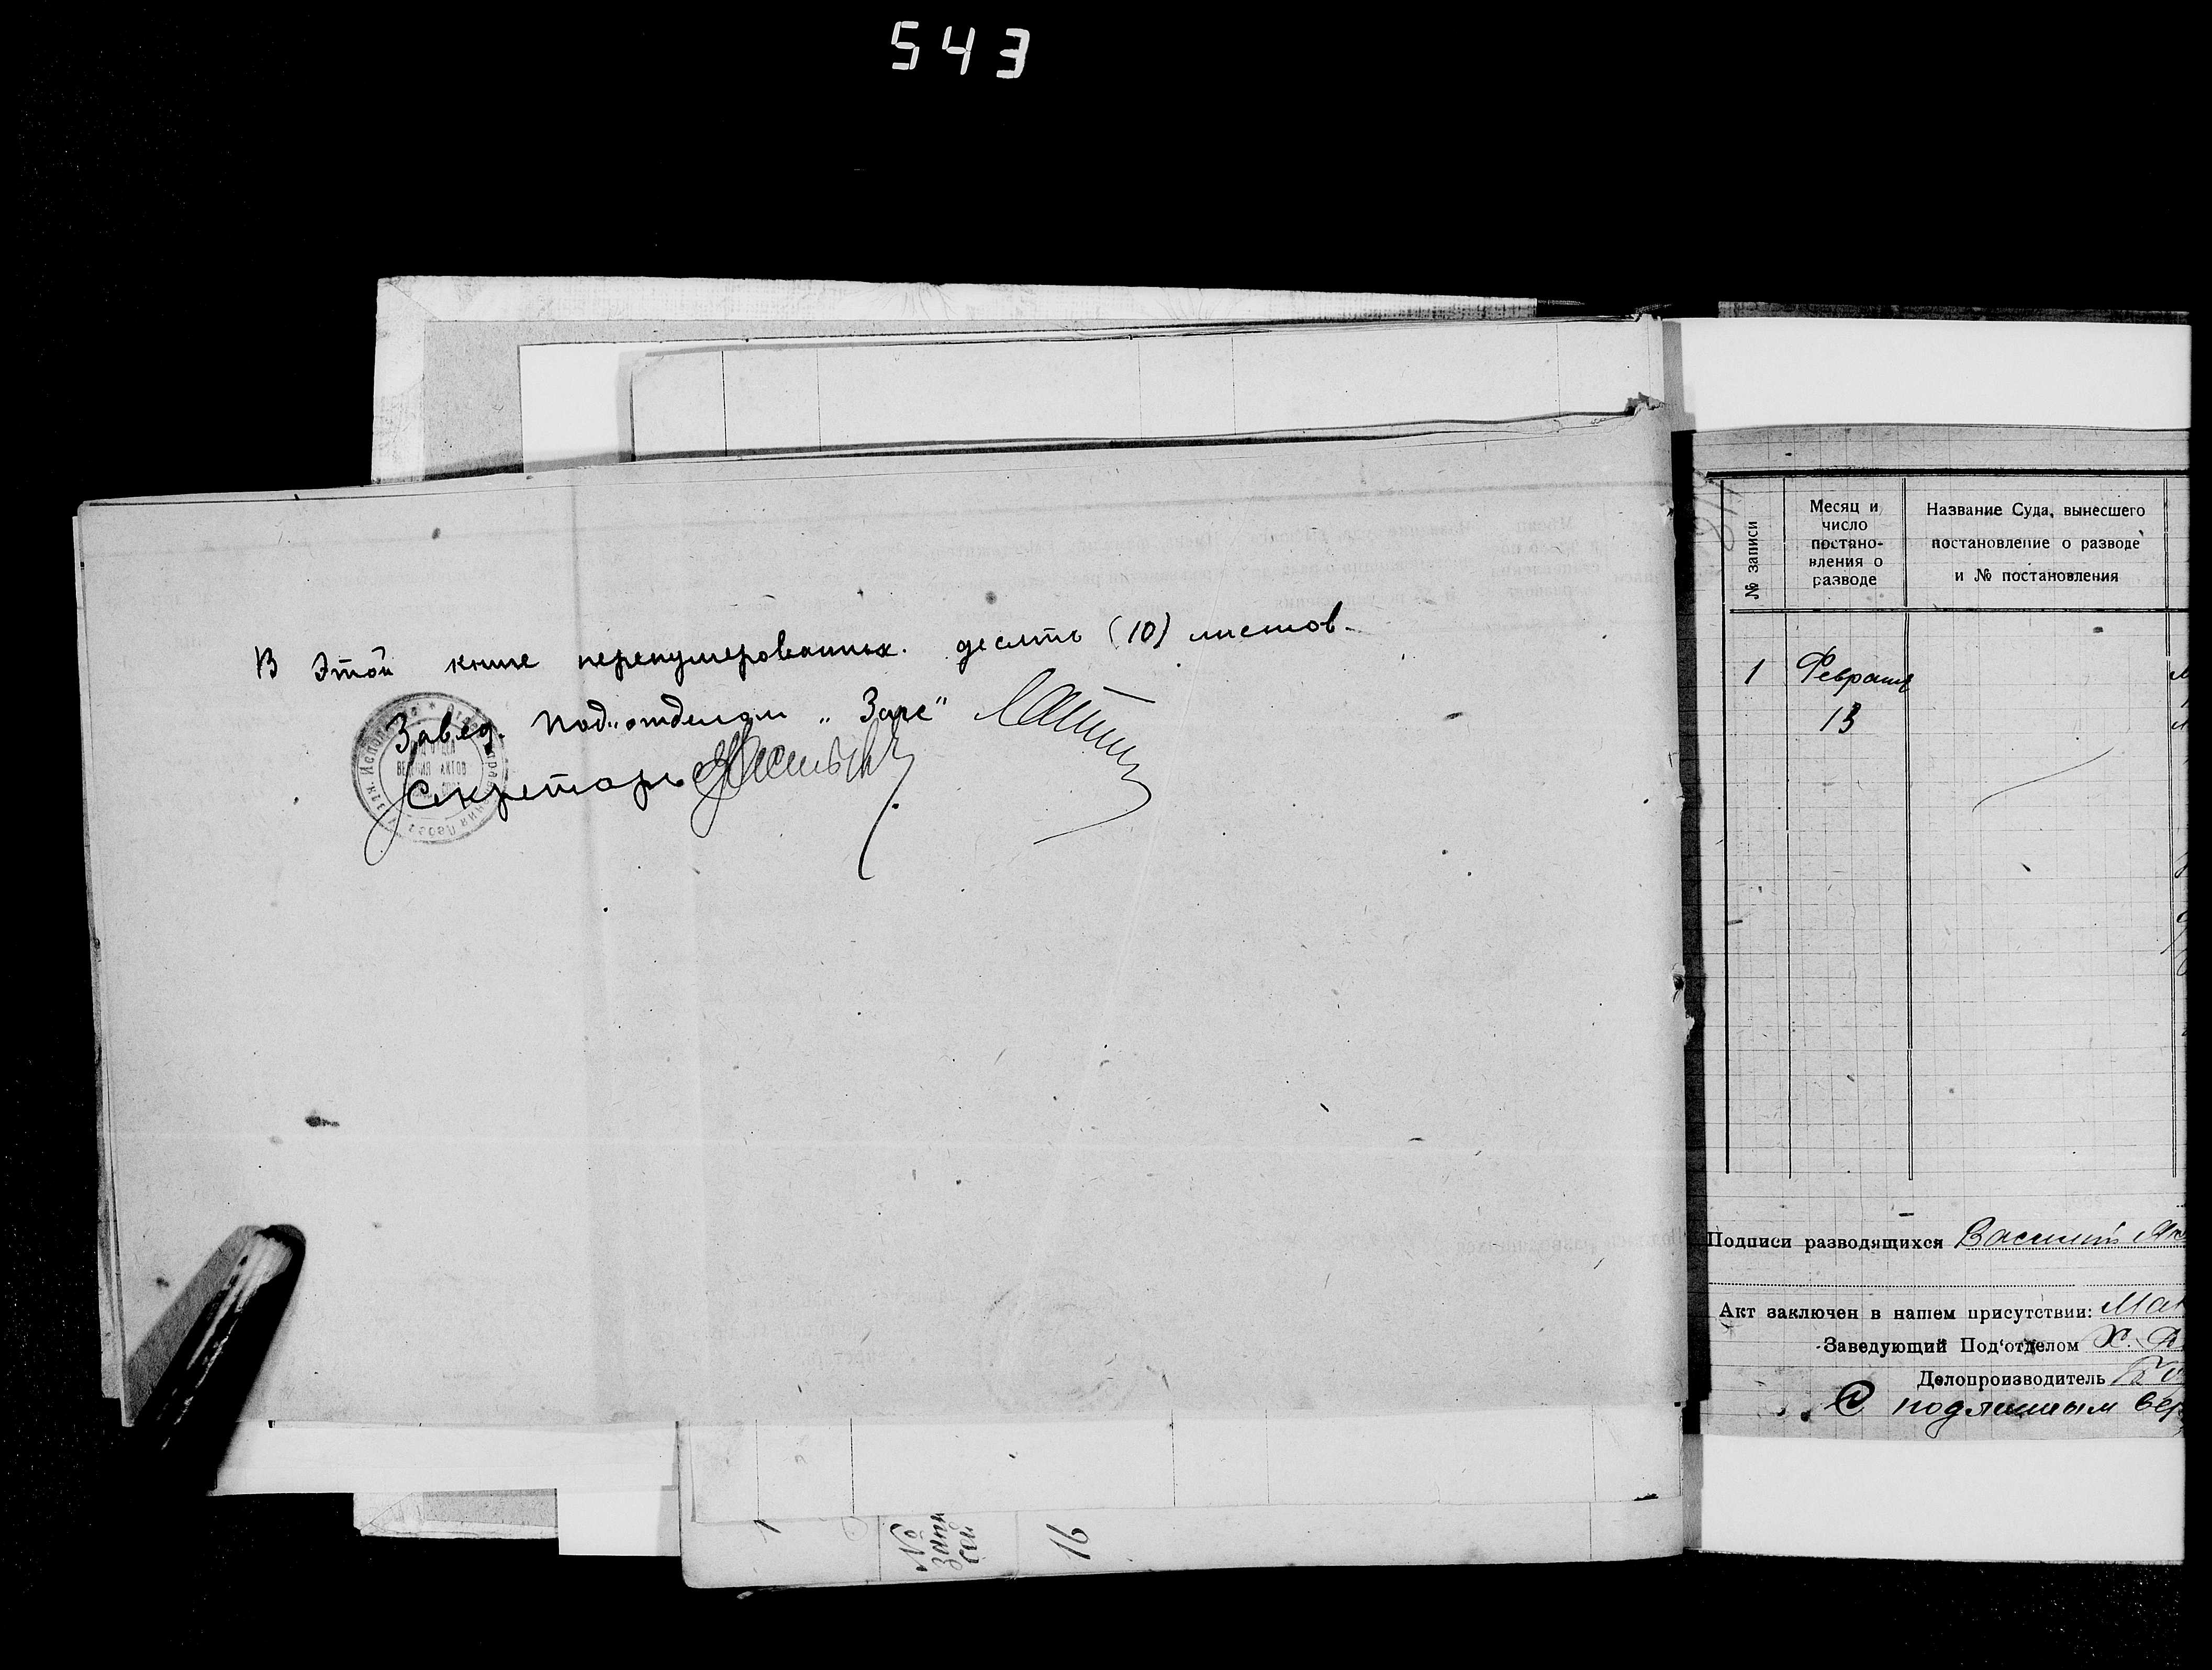 543
В этой книге перенумерованных. десять (10) листов.
Завед. Под"отделом „Загс"
Секретарь
№ записи
Месяц и
число
постано-
вления о
разводе
Название Суда, вынесшего
постановление о разводе
и № постановления
1 Февраля
13
Подписи разводящихся Василий
Акт заключен в нашем присутствии:
Заведующий Под'отделом Х.
Делопроизводитель
С подлинным вер
№
запи
сей
16